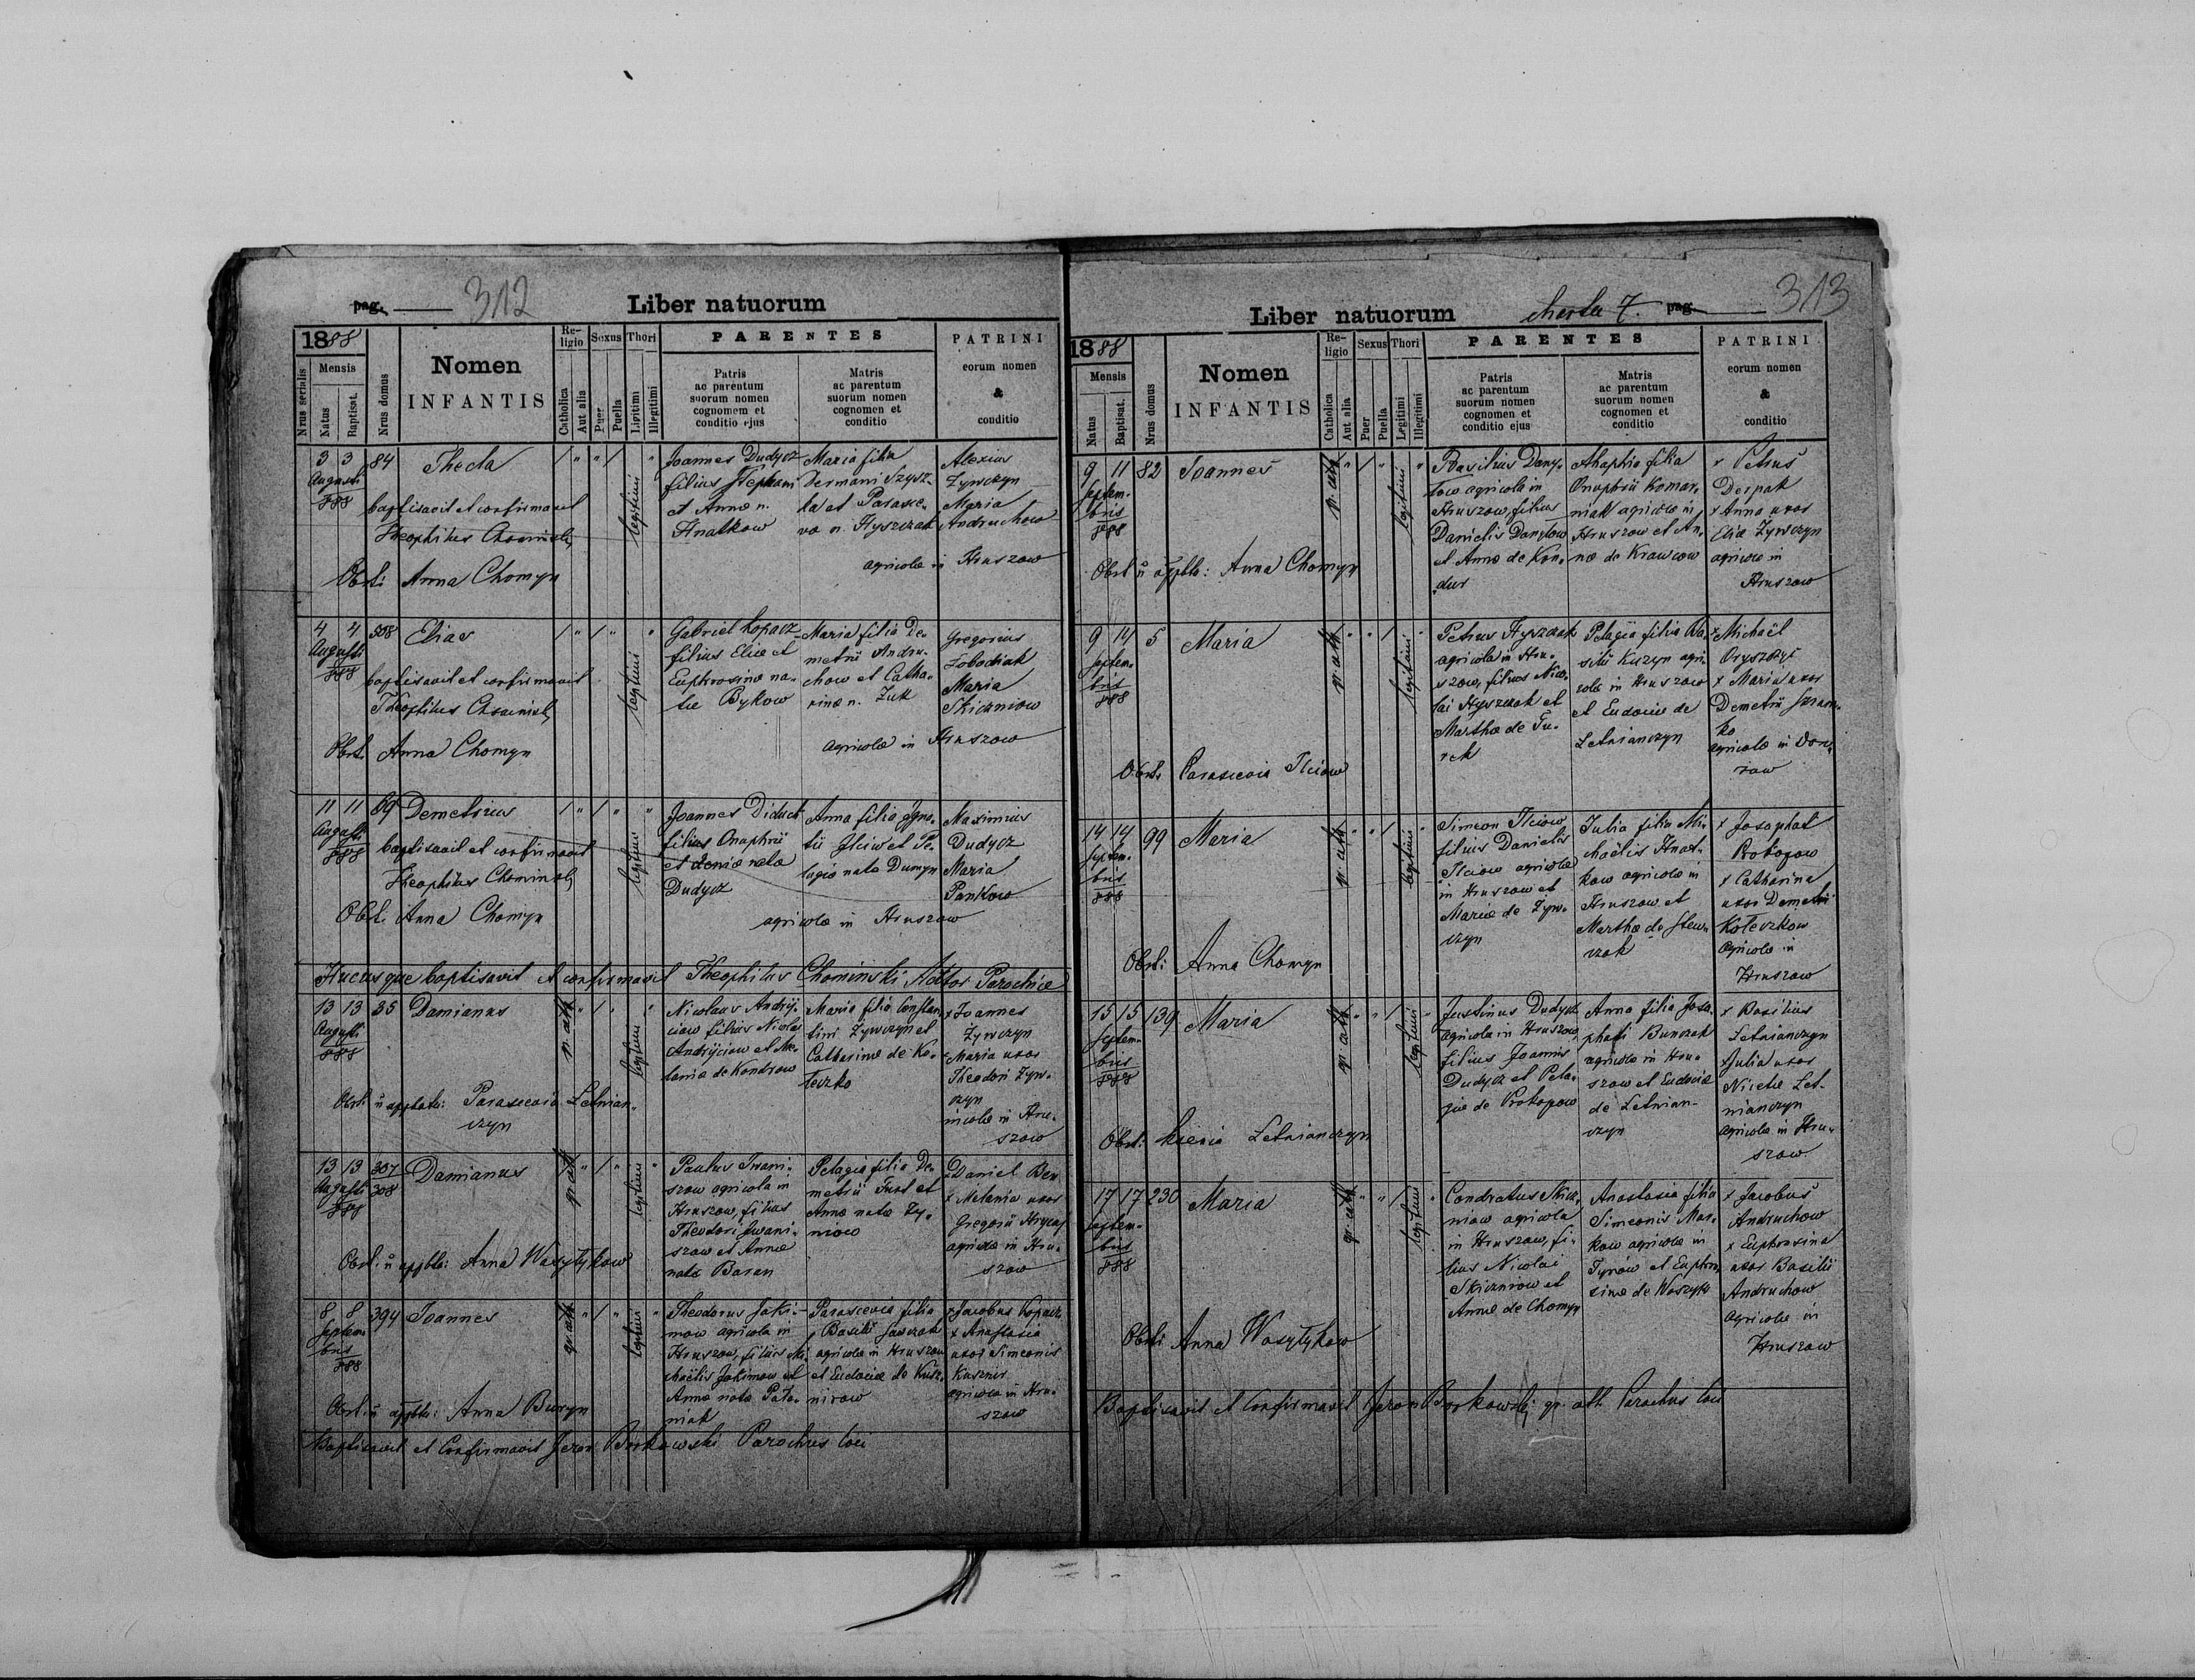 pag. 312
Liber natuorum
1888
Nrus serialis
Mensis
Natus
Baptisat.
Nrus domus
Nomen
INFANTIS
Re-
ligio
Catholica
Aut alia
Sexus
Puer
Puella
Thori
Legitimi
Illegitimi
PARENTES
Patris
ac parentum
suorum nomen
cognomen et
conditio ejus
Matris
ac parentum
suorum nomen
cognomen et
conditio
PATRINI
eorum nomen
&
conditio
3 3 84 Thecla
Augusti
888
baptisavit et confirmavit
Theophilus Chominski
Obst. Anna Chomyn
legitimi
Joannes Dudycz
filius Stephani
et Anna n.
Hnatkow
Maria filia
Dermani Szysz-
ka et Parasce-
va n. Hyszczak
Alexius
Zywczyn
Maria
Andruchow
agricolæ in Hruszow
4 4 Elias
Augusti
888
baptisavit et confirmavit
Theophilus Chominski
Obst. Anna Chomyn
legitimi
Gabriel Kopacz
filius Eliæ et
Euphrosinæ na-
tæ Bykow
Maria filia De-
metrii Andru-
chow et Catha-
rinæ n. Zuk
Gregorius
Łobodiak
Maria
Skiczniow
agricolæ in Hruszow
11 11 69 Demetrius
Augusti
888
baptisavit et confirmavit
Theophilus Chominski
Obst. Anna Chomyn
legitimi
Joannes Diduch
filius Onuphrii
et Xeniæ nata
Dudycz
Anna filia Igna-
tii Ilciw et Pe-
lagia nata Dumyn
Maximius
Dudycz
Maria
Pankow
agricolæ in Hruszow
Hucusque baptisavit et confirmavit Theophilus Chominski Adtor Parochiæ
13 13 35 Damianus
Augusti
888
gr. cath
legitimi
Obst. appbta: Parascevia Letnian-
czyn
Nicolaus Andrij-
ciow filius Nicolai
Andrijciow et Me-
laniæ de Kondrow
Maria filia Constan-
tini Zywczyn et
Catharinæ de Ko-
leczko
x Joannes
Zywczyn
x Maria uxor
Theodori Zyw-
czyn
incolæ in Hru-
szow
13 13 307
308 Damianus
Augusti
888
gr. cath
legitimi
Obst. appbta: Anna Wasyłykow
Paulus Iwani-
szow agricola in
Hruszow, filius
Theodori Iwani-
szow et Annæ
nata Baran
Pelagia filia De-
metrii Tust et
Annæ nata Zy-
niow
x Daniel Ben
x Melania uxor
Gregorii Hrycaj
agricolæ in Hru-
szow
8 8 394 Joannes
Septem-
bris
888
gr. cath
legitimi
Obst. appbta: Anna Buryn
Theodorus Jaki-
mow agricola in
Hruszow, filius Mi-
chaëlis Jakimow et
Annæ nata Pata-
niak
Parascevia filia
Basilii Sawczak
agricolæ in Hruszow
et Eudociæ de Kusz-
nirow
x Jacobus Kopacz
x Anastasia
uxor Simeonis
Kusznir
agricolæ in Hru-
szow
Baptisavit et Confirmavit Jeron Borkowski Parochus loci
Liber natuorum
charta 7. pag. 313
1888
Mensis
Natus
Baptisat.
Nrus domus
Nomen
INFANTIS
Re-
ligio
Catholica
Aut alia
Sexus
Puer
Puella
Thori
Legitimi
Illegitimi
PARENTES
Patris
ac parentum
suorum nomen
cognomen et
conditio ejus
Matris
ac parentum
suorum nomen
cognomen et
conditio
PATRINI
eorum nomen
&
conditio
9 11 82 Joannes
Septem-
bris
888
gr. cath
legitimi
Obst. appbta: Anna Chomyn
Basilius Dany-
low agricola in
Hruszow, filius
Danielis Danylow
et Annæ de Kon-
dur
Ahaphia filia
Onuphrii Komar-
niak agricolæ in
Hruszow et An-
næ de Krawcow
x Petrus
Derpak
x Anna uxor
Eliæ Zywczyn
agricolæ in
Hruszow
9 14 5 Maria
Septem-
bris
888
gr. cath
legitimi
Obst. Parascevia Ilciow
Petrus Hyszczak
agricola in Hru-
szow, filius Nico-
lai Hyszczak et
Marthæ de Tu-
rek
Pelagia filia Ba-
silii Kiszyn agri-
colæ in Hruszow
et Eudociæ de
Letnianczyn
x Michaël
Oryszczyc
x Maria uxor
Demetrii Szram-
ko
agricolæ in Dor-
zow
14 14 99 Maria
Septem-
bris
888
gr. cath
legitimi
Obst. Anna Chomyn
Simeon Ilciow
filius Danielis
Ilciow agricolæ
in Hruszow et
Mariæ de Zyw-
czyn
Julia filia Mi-
chaëlis Hnat-
kow agricolæ in
Hruszow et
Marthæ de Stew-
czak
x Josaphat
Prokopow
x Catharina
uxor Demetrii
Koleczkow
agricolæ in
Hruszow
15 15 139 Maria
Septem-
bris
888
gr. cath
legitimi
Obst. Ksenia Letnianczyn
Justinus Dudycz
agricola in Hruszow,
filius Joannis
Dudycz et Pela-
giæ de Prokopow
Anna filia Josa-
phati Bunczak
agricolæ in Hru-
szow et Eudociæ
de Letnian-
czyn
x Basilius
Letnianczyn
x Julia uxor
Nicetæ Let-
nianczyn
agricolæ in Hru-
szow.
17 17 230 Maria
Septem-
bris
888
gr. cath
legitimi
Obst. Anna Wasyłykow
Condratus Skicz-
niow agricola
in Hruszow, fi-
lius Nicolai
Skiczniow et
Annæ de Chomyn
Anastasia filia
Simeonis Mar-
kow agricolæ in
Tynow et Euphro-
sinæ de Waszyk
x Jacobus
Andruchow
x Euphrosina
uxor Basilii
Andruchow
agricolæ in
Hruszow
Baptisavit et Confirmavit Jeron Borkowski gr. cath. Parochus loci